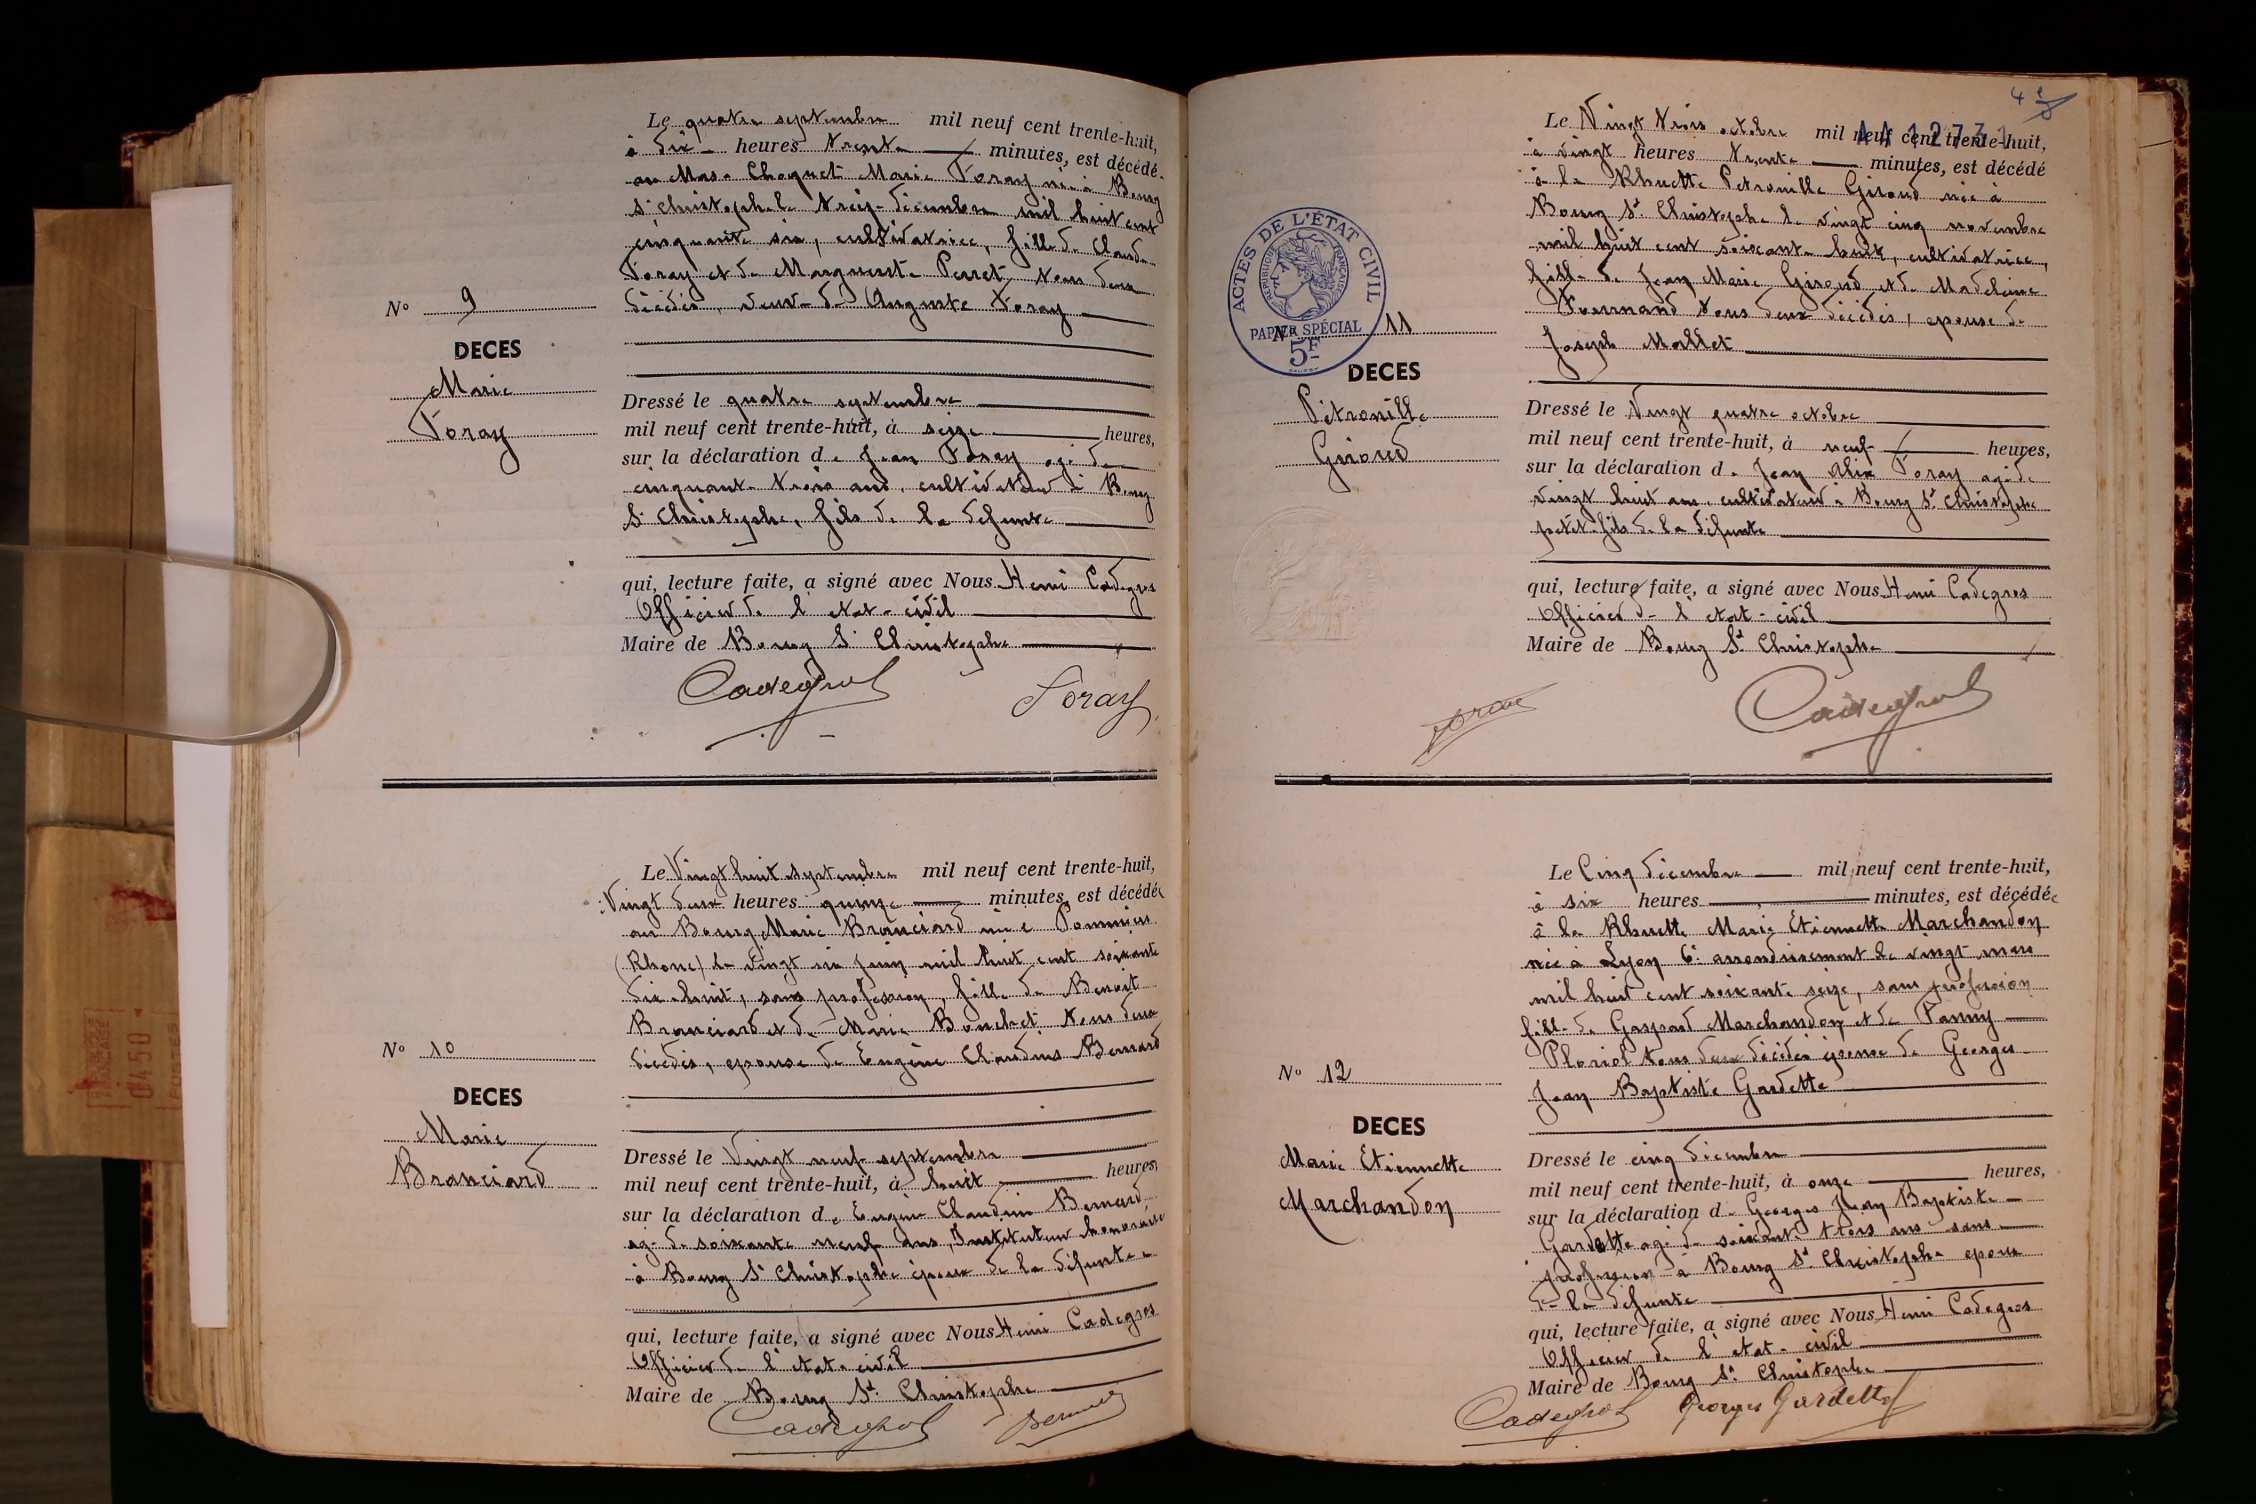 Le quatre septembre mil neuf cent trente-huit,
à dix heures trente minutes, est décédé
au Mas-Choquet Marie Foray née à Bourg
St Christophe le treize décembre mil huit cent
cinquante six, cultivatrice, fille de Claude
Foray et de Marguerite Perret tous deux
décédés, veuve de Auguste Foray
N° 9
DECES
Marie
Foray
Dressé le quatre septembre
mil neuf cent trente-huit, à seize heures,
sur la déclaration de Jean Foray agé de
cinquante trois ans, cultivateur à Bourg
St Christophe, fils de la défunte
qui, lecture faite, a signé avec Nous Henri Cadegros
Officier de l'état-civil
Maire de Bourg St Christophe
Cadegros Foray
Le Vingt huit septembre mil neuf cent trente-huit,
Vingt deux heures quinze minutes, est décédée
au Bourg Marie Branciard née à Pommiers
(Rhone) le vingt six juin mil huit cent soixante
dix-huit, sans profession, fille de Benoit
Branciard et de Marie Bouchet tous deux
décédés, epouse de Eugène Claudius Bernard
N° 10
DECES
Marie
Branciard
Dressé le Vingt neuf septembre
mil neuf cent trente-huit, à huit heures,
sur la déclaration de Eugène Claudius Bernard
agé de soixante neuf ans, Instituteur honoraire
à Bourg St Christophe époux de la défunte
qui, lecture faite, a signé avec Nous Henri Cadegros
Officier de l'état-civil
Maire de Bourg St Christophe
Cadegros Bernard
Le Vingt trois octobre mil neuf cent trente-huit,
à vingt heures trente minutes, est décédé
à la Rhuette Petronille Giroud née à
Bourg St Christophe le vingt cinq novembre
mil huit cent soixante huit, cultivatrice,
fille de Jean Marie Giroud et de Madeleine
tous deux décédés, epouse de
Joseph Mallet
ACTES DE L'ÉTAT CIVIL
RÉPUBLIQUE FRANÇAISE
PAPIER SPÉCIAL
5F
N° 11
DECES
Pétronille
Giroud
Dressé le Vingt quatre octobre
mil neuf cent trente-huit, à neuf heures,
sur la déclaration de Jean Foray agé de
vingt huit ans, cultivateur à Bourg St Christophe
petit-fils de la défunte
qui, lecture faite, a signé avec Nous Henri Cadegros
Officier de l'état-civil
Maire de Bourg St Christophe
Foray Cadegros
Le Cinq décembre mil neuf cent trente-huit,
à six heures minutes, est décédée
à la Rhuette Marie Etiennette Marchandon
née à Lyon 6e arrondissement le vingt mars
mil huit cent soixante seize, sans profession
fille de Gaspard Marchandon et de Fanny
Ploriol tous deux décédés épouse de Georges
Jean Baptiste Gardette
N° 12
DECES
Marie Etiennette
Marchandon
Dressé le cinq décembre
mil neuf cent trente-huit, à onze heures,
sur la déclaration de Georges Jean Baptiste
Gardette agé de soixante trois ans sans
profession à Bourg St Christophe epoux
de la défunte
qui, lecture faite, a signé avec Nous Henri Cadegros
Officier de l'état-civil
Maire de Bourg St Christophe
Cadegros Georges Gardette